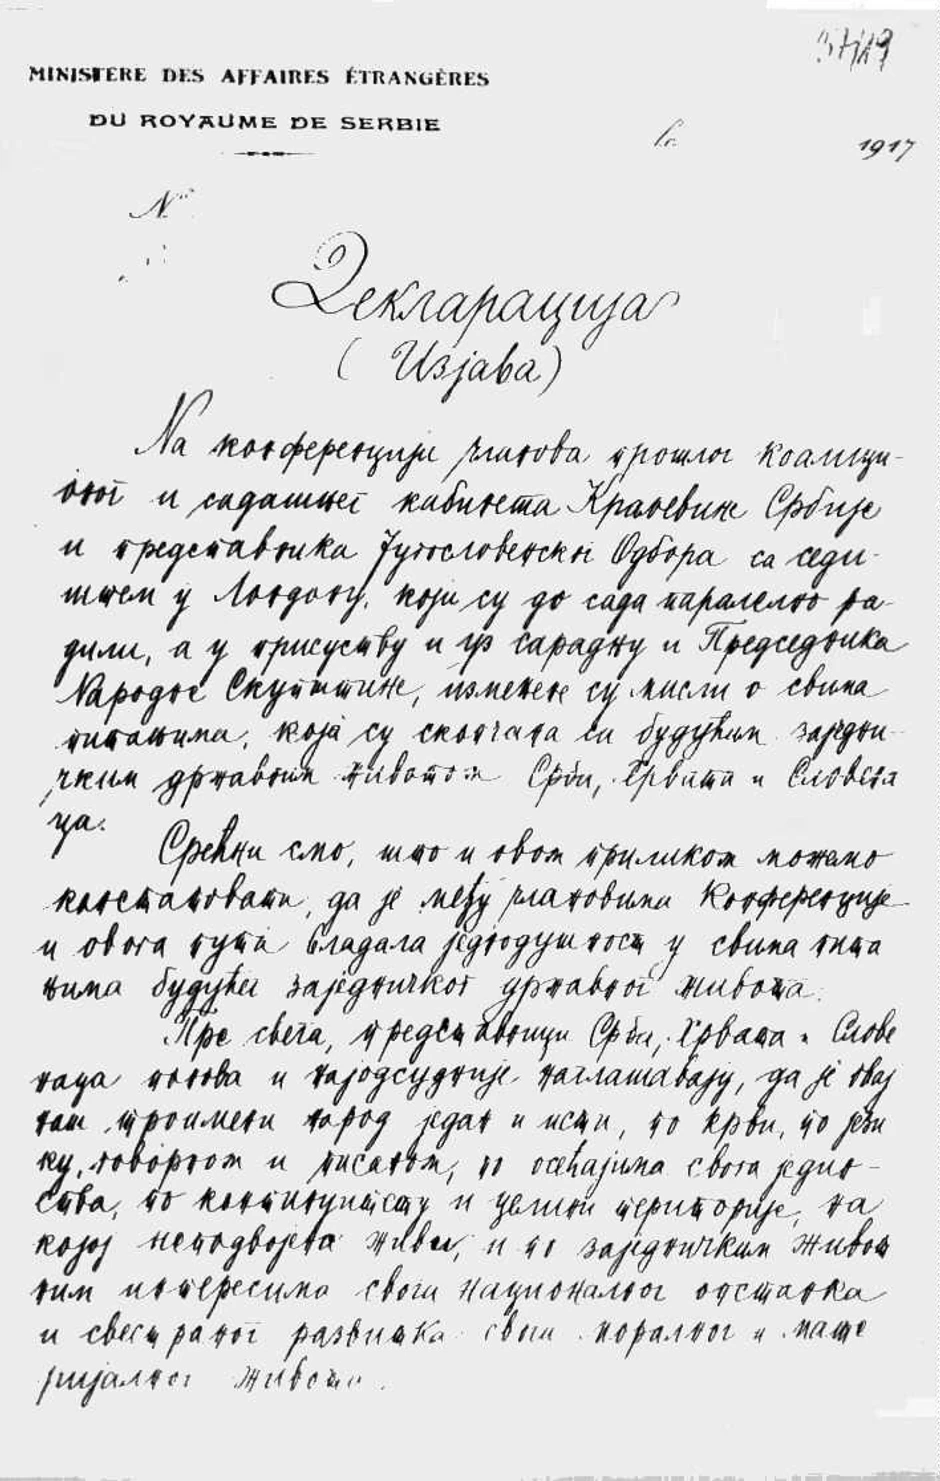 MINISTÈRE DES AFFAIRES ÉTRANGÈRES
DU ROYAUME DE SERBIE
1917
№
Декларација
(Изјава)
На конференцији чланова прошлог коалици-
оног и садашњег кабинета Краљевине Србије
и представника Југословенског Одбора са седи-
штем у Лондону, који су до сада паралелно ра-
дили, а у присуству и уз сарадњу и Председника
Народне Скупштине, измењене су мисли о свима
питањима, која су скопчана са будућим заједни-
чким државним животом Срба, Хрвата и Словена
ца.
Срећни смо, што и овом приликом можемо
констатовати, да је међу члановима Конференције
и овога пута владала једнодушност у свима пита
њима будућег заједничког државног живота.
Пре свега, представници Срба, Хрвата и Слове
наца понова и најодсудније наглашавају, да је овај
наш троимени народ један и исти, по крви, по јези
ку, говорном и писаном, по осећајима свога једин-
ства, по континуитету и целини територије, на
којој неподвојено живи, и по заједничким живот
ним интересима свога националног опстанка
и свестраног развитка свога моралног и мате
ријалног живота.